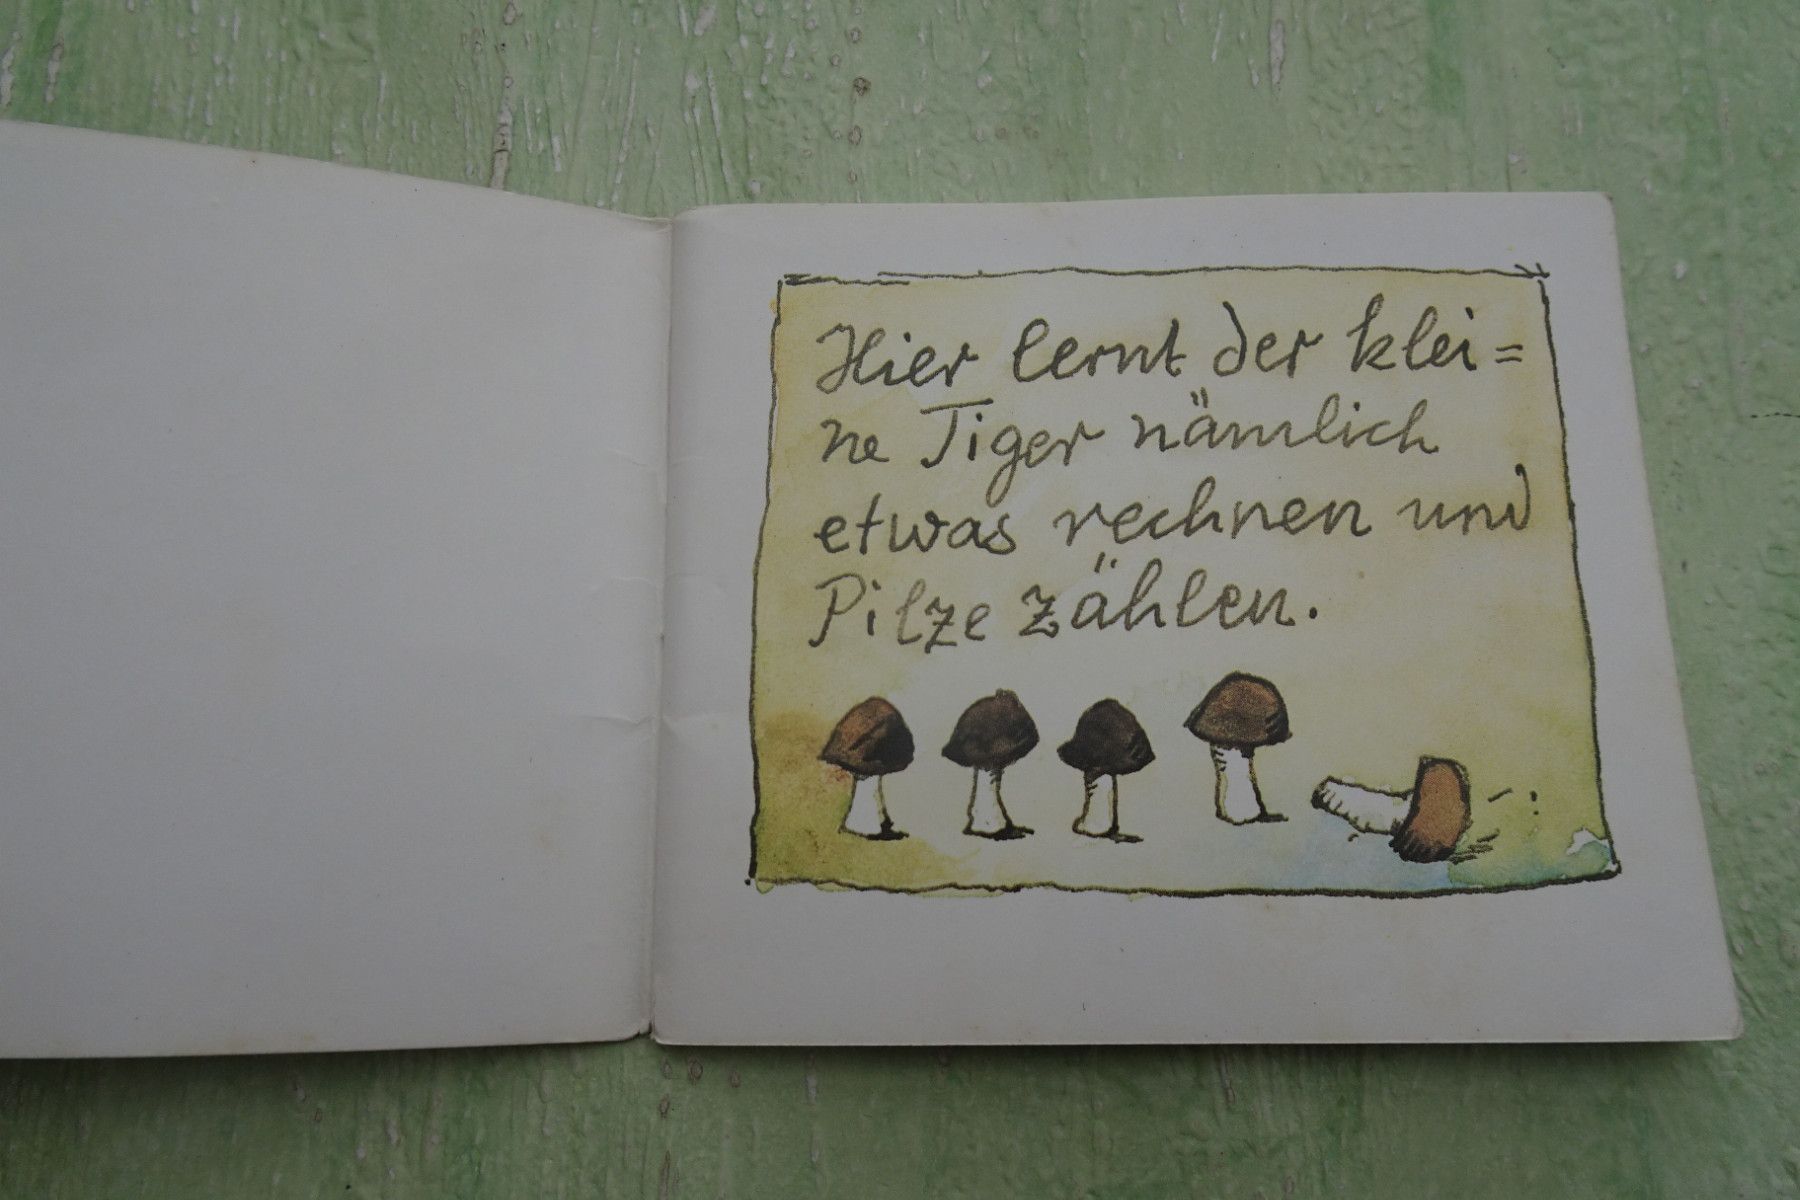 Hier lernt der klei=
ne Tiger nämlich
etwas rechnen und
Pilze zählen.